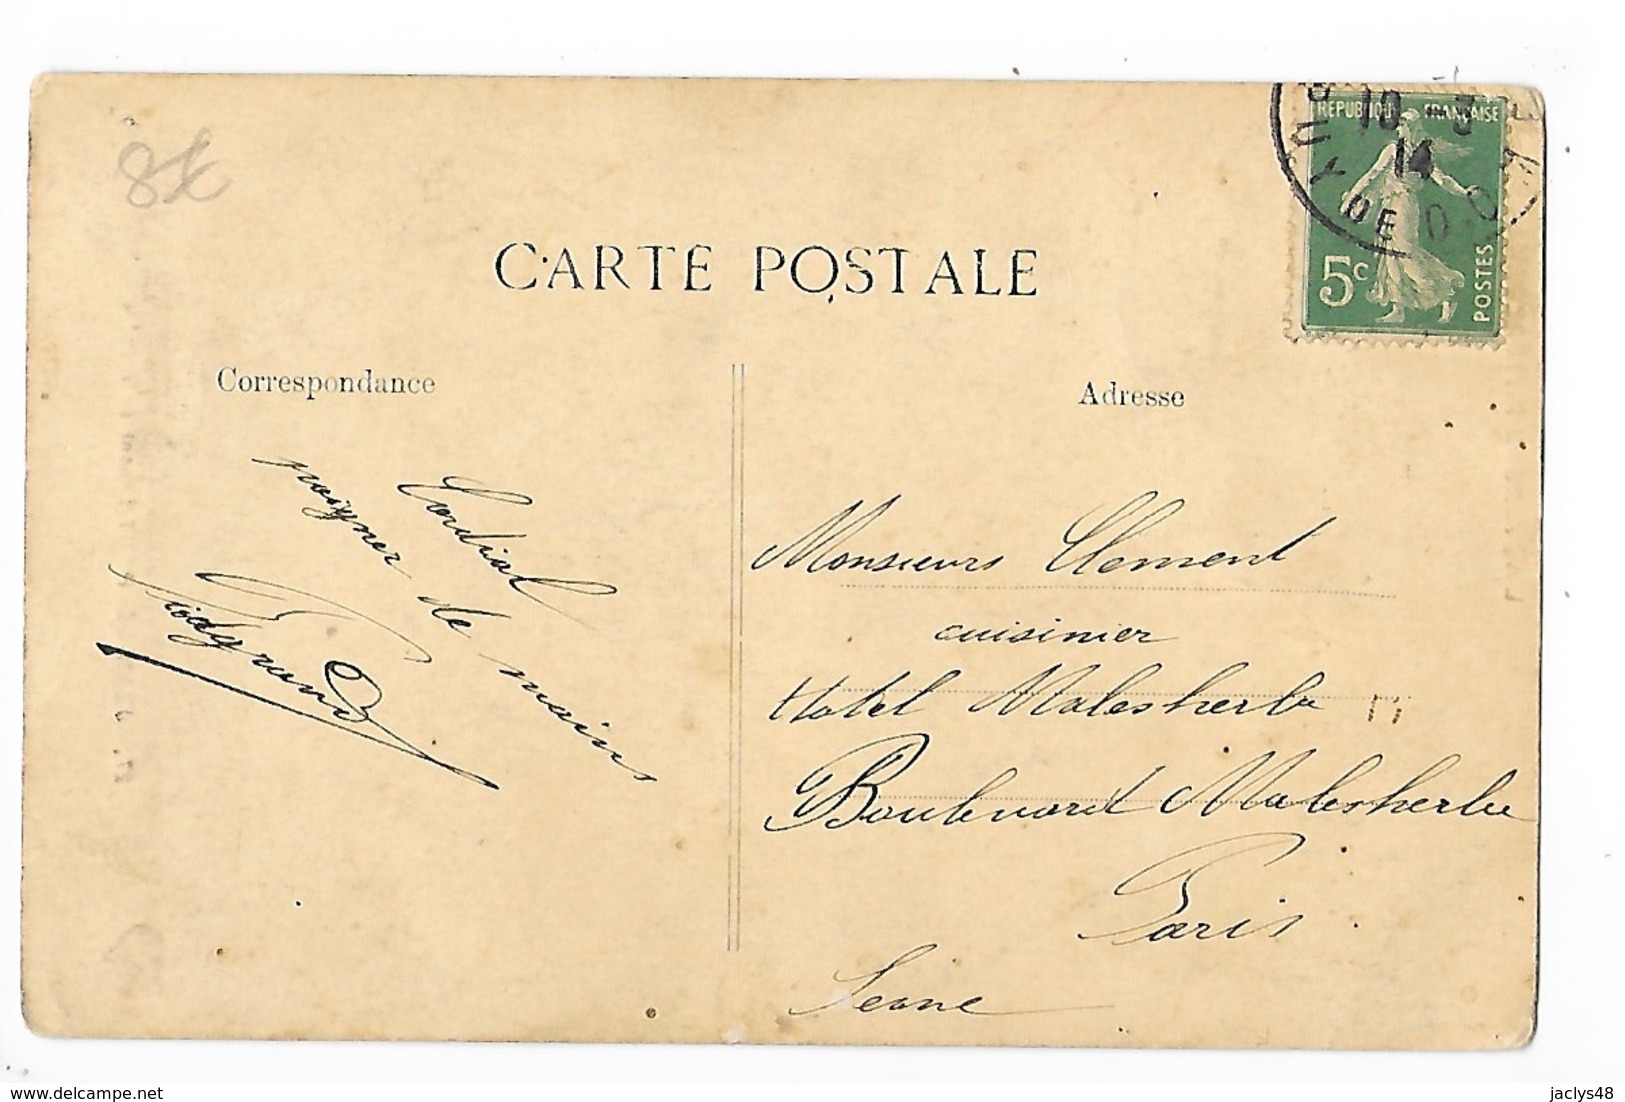 8€
CARTE POSTALE
RÉPUBLIQUE FRANÇAISE
10 -3
14
PUY DE DO
5c
POSTES
Correspondance
Adresse
Cordial
poigner de mains
Monsieurs Clement
cuisinier
Hotel Malesherbe
Boulevard Malesherbe
Paris
Seine
www.delcampe.net
jaclys48